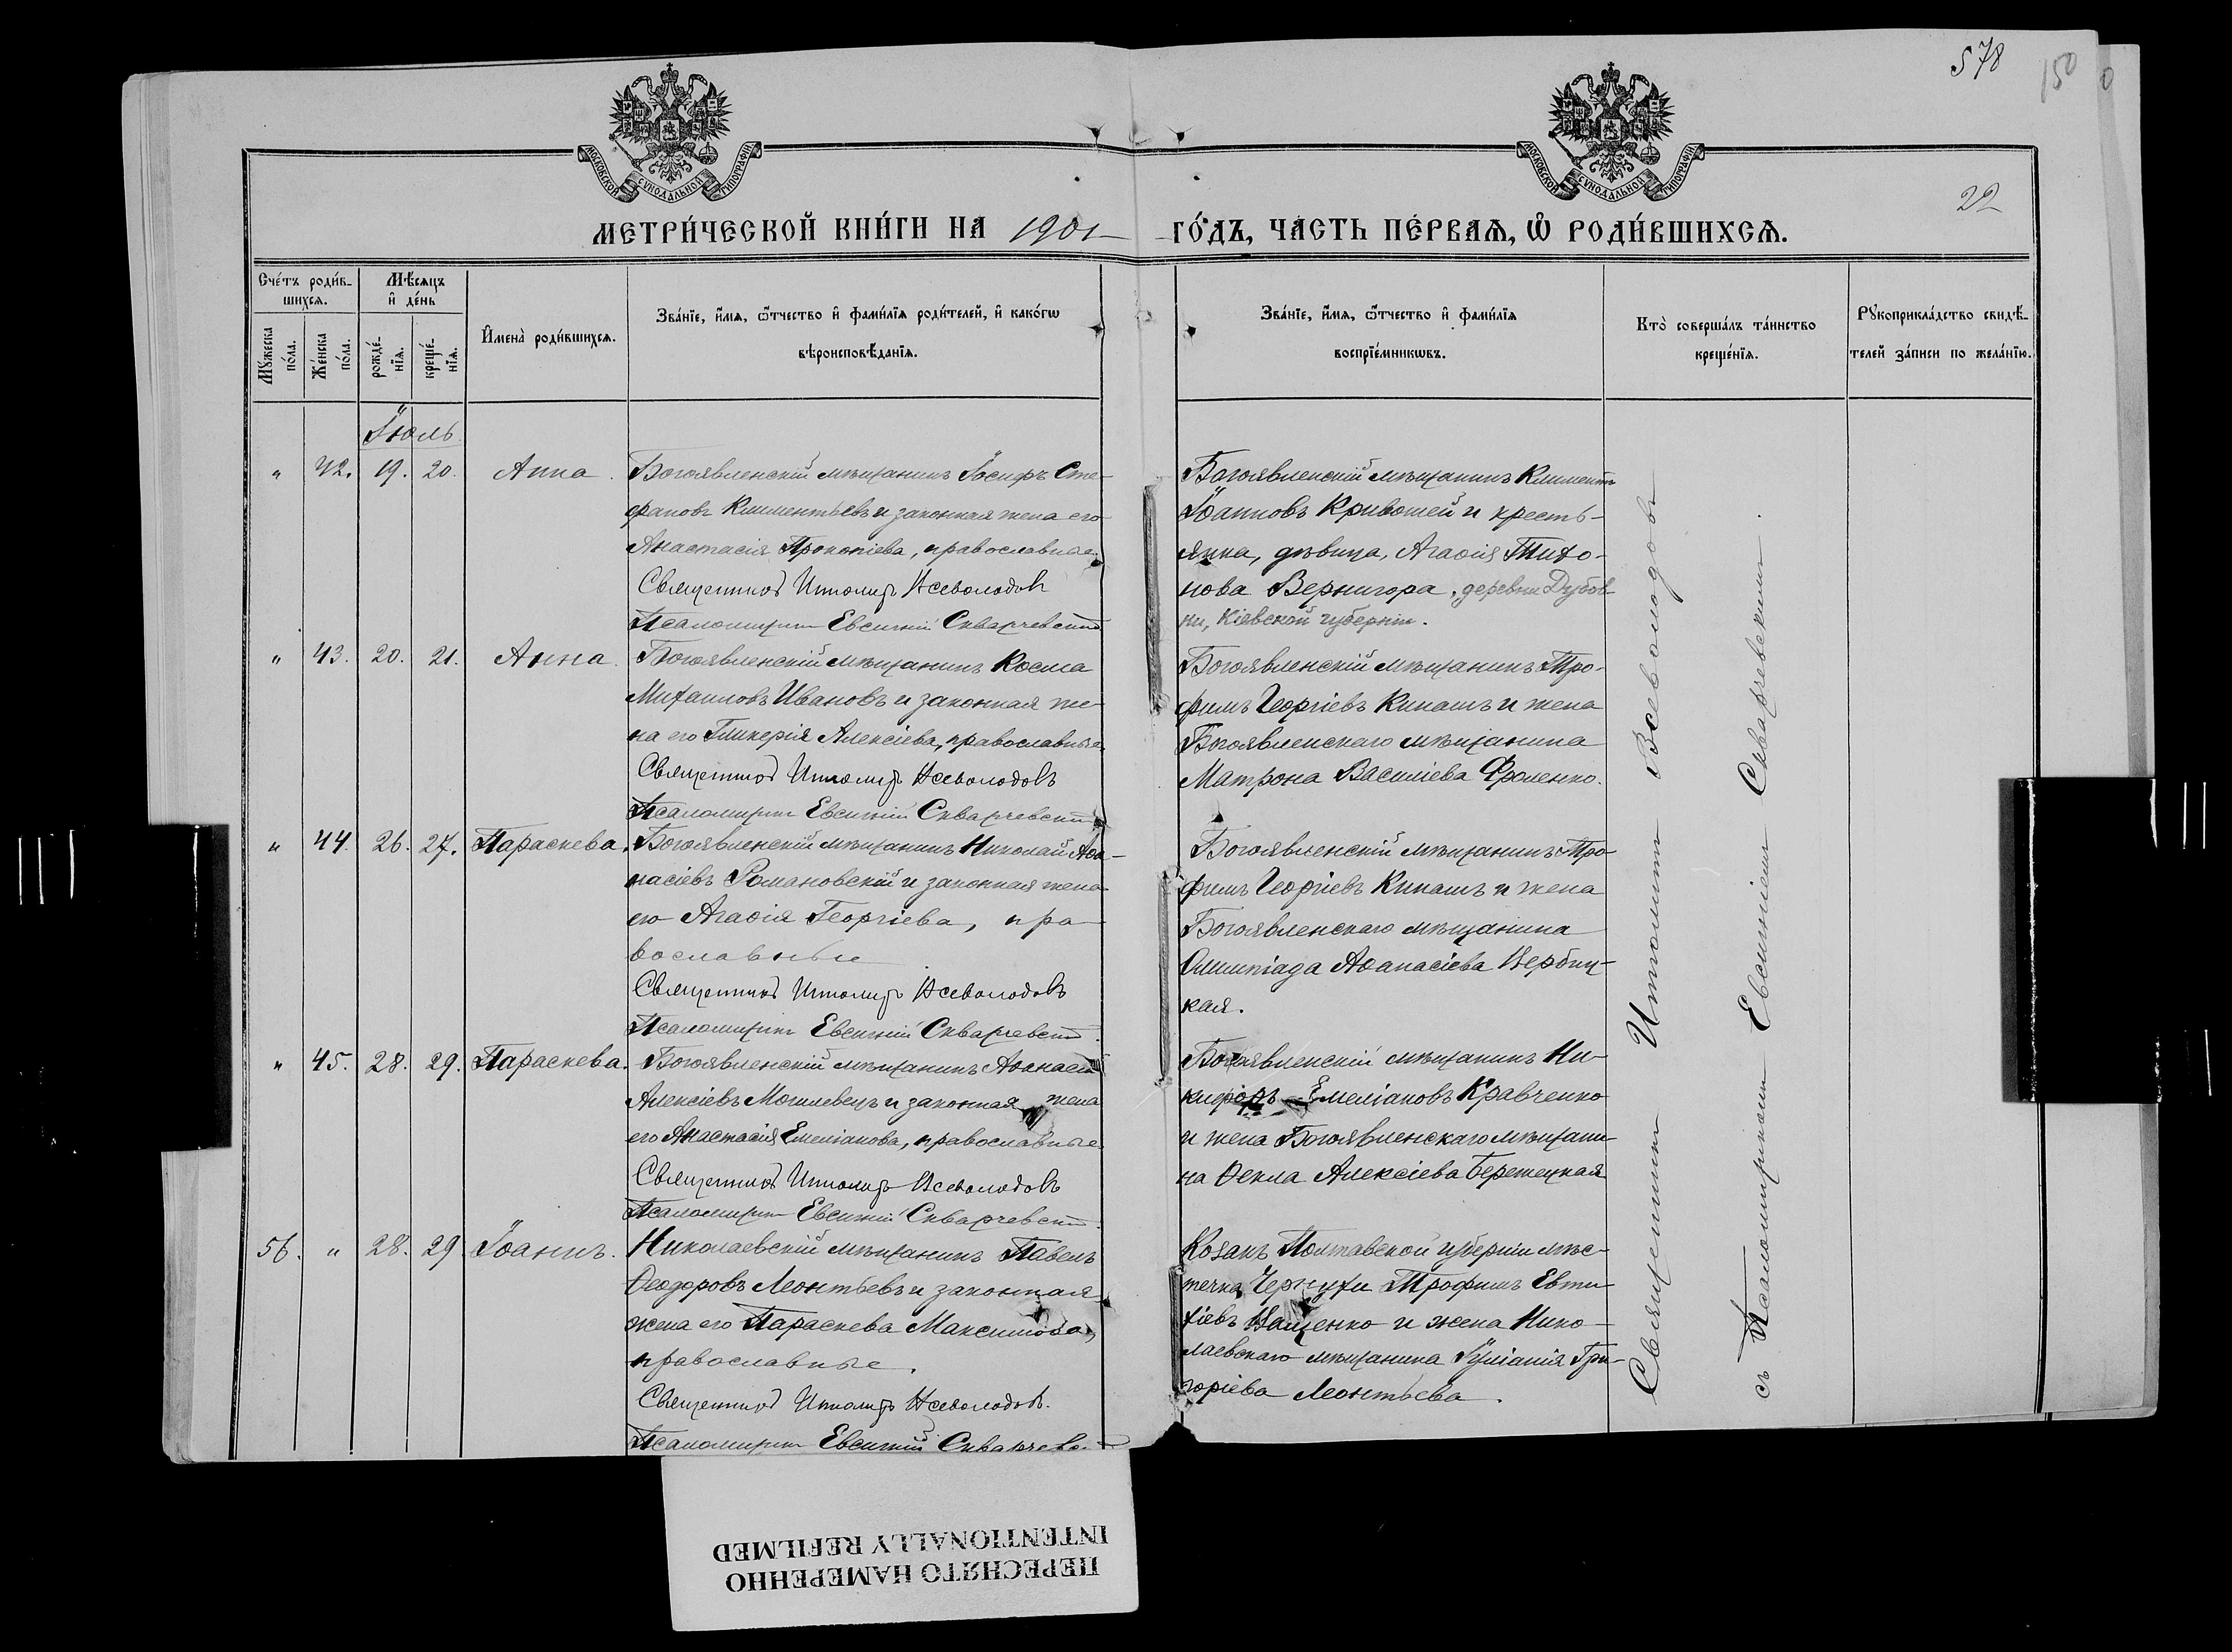 578
150
0
МОСКОВСКОЙ СѴНОДАЛЬНОЙ ТИПОГРАФІИ
МОСКОВСКОЙ СѴНОДАЛЬНОЙ ТИПОГРАФІИ
22
МЕТРИ́ЧЕСКОЙ КНИ́ГИ НА 1901 ГО́ДЪ, ЧА́СТЬ ПЕ́РВАѦ, Ѡ҆ РОДИ́ВШИХСѦ.
Сче́тъ роди́в-
шихсѧ.
Мѣ́сяцъ
и҆ де́нь
Мꙋ́жеска
по́ла.
Же́нска
по́ла.
рожде́-
нїѧ.
креще́-
нїѧ.
И҆мена̀ роди́вшихсѧ.
Зва́нїе, и҆́мѧ, ѻ҆́тчество и҆ фами́лїѧ роди́телей, и҆ како́гѡ
вѣроисповѣ́данїѧ.
Зва́нїе, и҆́мѧ, ѻ҆́тчество и҆ фами́лїѧ
воспрїе́мникѡвъ.
Кто̀ соверша́лъ та́инство
креще́нїѧ.
Рꙋкоприкла́дство свидѣ́-
телей за́писи по жела́нїю.
Іюль
„ 42. 19. 20. Анна.
Богоявленскій мѣщанинъ Іосифъ Сте-
фановъ Климентьевъ и законная жена его
Анастасія Прокопіева, православные.
Священникъ Ипполитъ Всеволодовъ
Псаломщикъ Евсигній Скварчевскій
Богоявленскій мѣщанинъ Климентъ
Іоанновъ Кривошей и кресть-
янка, дѣвица, Агаѳія Тихо-
нова Вернигора, деревни Дубов-
ки, Кіевской губерніи.
„ 43. 20. 21. Анна.
Богоявленскій мѣщанинъ Косма
Михаиловъ Ивановъ и законная же-
на его Гликерія Алексіева, православные.
Священникъ Ипполитъ Всеволодовъ
Псаломщикъ Евсигній Скварчевскій
Богоявленскій мѣщанинъ Тро-
фимъ Георгіевъ Кинашъ и жена
Богоявленскаго мѣщанина
Матрона Василіева Фроленко.
„ 44. 26. 27. Параскева.
Богоявленскій мѣщанинъ Николай Аѳа-
насіевъ Романовскій и законная жена
его Агаѳія Георгіева, пра-
вославные
Священникъ Ипполитъ Всеволодовъ
Псаломщикъ Евсигній Скварчевскій
Богоявленскій мѣщанинъ Тро-
фимъ Георгіевъ Кинашъ и жена
Богоявленскаго мѣщанина
Олимпіада Аѳанасіева Вербиц-
кая.
„ 45. 28. 29. Параскева.
Богоявленскій мѣщанинъ Аѳанасій
Алексіевъ Могилевецъ и законная жена
его Анастасія Емеліанова, православные.
Священникъ Ипполитъ Всеволодовъ
Псаломщикъ Евсигній Скварчевскій
Богоявленскій мѣщанинъ Ни-
кифоръ Емеліановъ Кравченко
и жена Богоявленскаго мѣщани-
на Ѳекла Алексіева Бережецкая
56. „ 28. 29 Іоаннъ.
Николаевскій мѣщанинъ Павелъ
Ѳеодоровъ Леонтьевъ и законная
жена его Параскева Максимова,
православные.
Священникъ Ипполитъ Всеволодовъ.
Псаломщикъ Евсигній Скварчевс
Козакъ Полтавской губерніи мѣс-
течка Чернухи Трофимъ Евти-
хіевъ Ващенко и жена Нико-
лаевскаго мѣщанина Іуліанія Гри-
горіева Леонтьева.
Священникъ Ипполитъ Всеволодовъ
съ Псаломщикомъ Евсигніемъ Скварчевскимъ.
ПЕРЕСНЯТО НАМЕРЕННО
INTENTIONALLY REFILMED